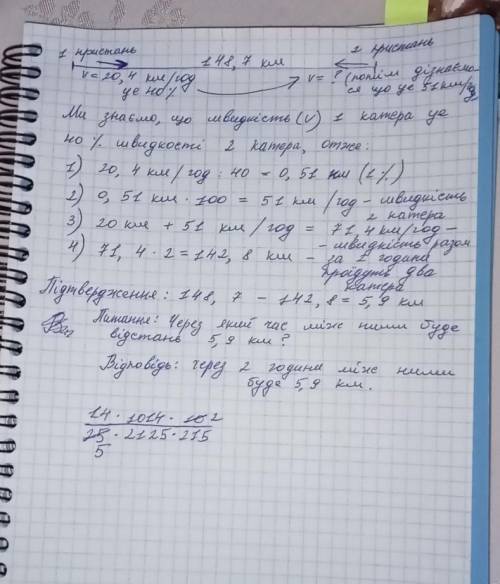 1 пристань 148,7 км 2 пристань
v = 20,4 км/год v = ? (потім дізнаємо-
це 40% ся що це 51 км/год
Ми знаємо, що швидкість (v) 1 катера це
40 % швидкості 2 катера, отже:
1) 20,4 км/год : 40 = 0,51 км (1%)
2) 0,51 км · 100 = 51 км/год - швидкість
2 катера
3) 20 км + 51 км/год = 71,4 км/год -
- швидкість разом
4) 71,4 · 2 = 142,8 км - за 2 години
пройдуть два
катера
Підтвердження: 148,7 - 142,8 = 5,9 км
Питання: Через який час між ними буде
відстань 5,9 км?
Відповідь: через 2 години між ними
буде 5,9 км.
14 · 1014 · 10 2
25 · 2125 · 215
5